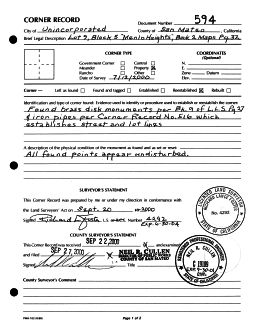 CORNER RECORD
Document Number 594
City of Unincorporated County of San Mateo , California
Brief Legal Description Lot 9, Block 5 Menlo Heights, Book 2 Maps Pg. 32
CORNER TYPE
COORDINATES
(Optional)
Government Corner Control N.
Meander Property E.
Rancho Other Zone Datum
Date of Survey 7/12/2000 Elev.
Corner — Left as found Found and tagged Established Reestablished Rebuilt
Identification and type of corner found: Evidence used to identify or procedure used to establish or reestablish the corner:
Found brass disk monuments per Bk. 9 of L.L.S. Pg. 37
& iron pipes per Corner Record No. 516 which
establishes street and lot lines
A description of the physical condition of the monument as found and as set or reset:
All found points appear undisturbed.
SURVEYOR'S STATEMENT
This Corner Record was prepared by me or under my direction in conformance with
the Land Surveyors' Act on Sept. 20 2000
Signed L.S. or RCE Number 4292
Exp. 6-30-04
COUNTY SURVEYOR'S STATEMENT
This Corner Record was received SEP 22 2000
and filed SEP 22 2000
Signed
NEIL R. CULLEN
COUNTY OF SAN MATEO
No. 4292
STATE OF CALIFORNIA
NEIL R. CULLEN
Page 1 of 2